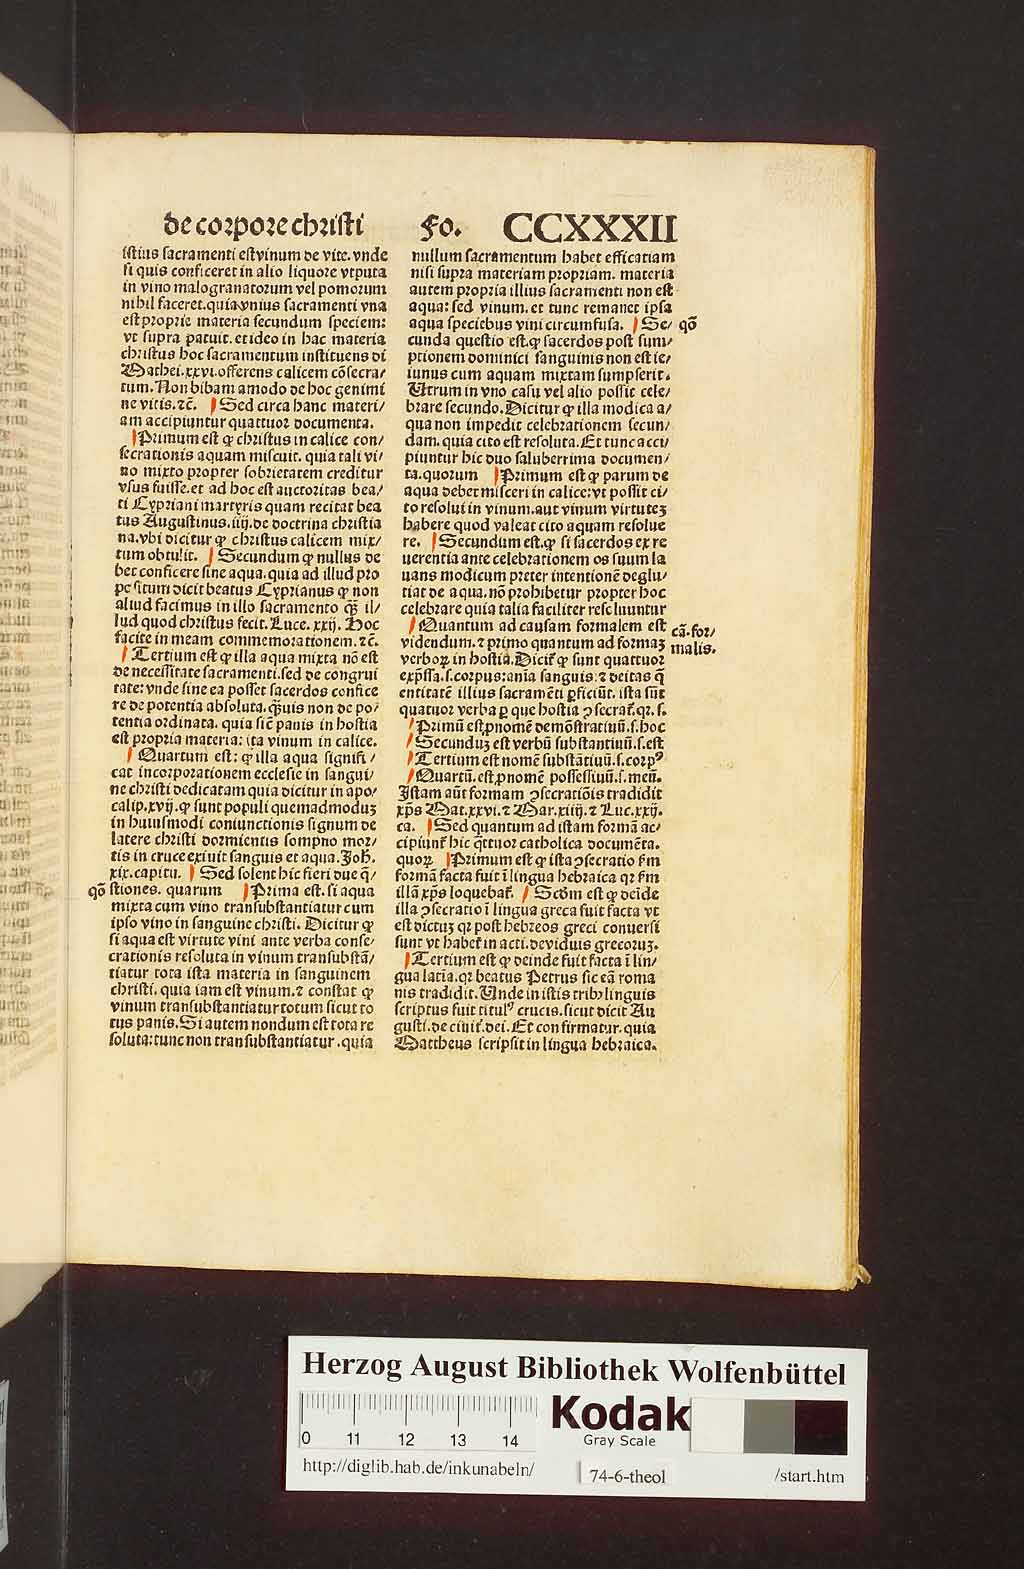 de corpore christi Fo. CCXXXII
istius sacramenti est vinum de vite. vnde
si quis conficeret in alio liquore vtputa
in vino malogranatorum vel pomorum
nihil faceret. quia vnius sacramenti vna
est proprie materia secundum speciem:
vt supra patuit. et ideo in hac materia
christus hoc sacramentum instituens di
Mathei. xxvi. offerens calicem cōsecra/
tum. Non bibam amodo de hoc genimi
ne vitis. ⁊c̄. Sed circa hanc materi/
am accipiuntur quattuor documenta.
Primum est ꝙ christus in calice con/
secrationis aquam miscuit. quia tali vi/
no mixto propter sobrietatem creditur
vsus fuisse. et ad hoc est auctoritas bea/
ti Cypriani martyris quam recitat bea
tus Augustinus. iiij. de doctrina christia
na. vbi dicitur ꝙ christus calicem mix/
tum obtulit. Secundum ꝙ nullus de
bet conficere sine aqua. quia ad illud pro
positum dicit beatus Cyprianus ꝙ non
aliud facimus in illo sacramento qꝫ̄ il/
lud quod christus fecit. Luce. xxij. Hoc
facite in meam commemorationem. ⁊c̄.
Tertium est ꝙ illa aqua mixta nō est
de necessitate sacramenti. sed de congrui
tate: vnde sine ea posset sacerdos confice
re de potentia absoluta. qꝫ̄uis non de po/
tentia ordinata. quia sic̄ panis in hostia
est propria materia: ita vinum in calice.
Quartum est: ꝙ illa aqua signifi/
cat incorporationem ecclesie in sangui/
ne christi dedicatam quia dicitur in apo/
calip. xvij. ꝙ sunt populi quemadmoduꝫ
in huiusmodi coniunctionis signum de
latere christi dormientis sompno mor/
tis in cruce exiuit sanguis et aqua. Joh̄.
xix. capitu. Sed solent hic fieri due q̄/
qō stiones. quarum Prima est. si aqua
mixta cum vino transubstantiatur cum
ipso vino in sanguine christi. Dicitur ꝙ
si aqua est virtute vini ante verba conse/
crationis resoluta in vinum transubstā/
tiatur tota ista materia in sanguinem
christi. quia iam est vinum. ⁊ constat ꝙ
vinum transubstantiatur totum sicut to
tus panis. Si autem nondum est tota re
soluta: tunc non transubstantiatur. quia
nullum sacramentum habet efficatiam
nisi supra materiam propriam. materia
autem propria illius sacramenti non est
aqua: sed vinum. et tunc remanet ipsa
aqua speciebus vini circumfusa. Se/ qō
cunda questio est. ꝙ sacerdos post sum/
ptionem dominici sanguinis non est ie/
iunus cum aquam mixtam sumpserit.
Utrum in vno casu vel alio possit cele/
brare secundo. Dicitur ꝙ illa modica a/
qua non impedit celebrationem secun/
dam. quia cito est resoluta. Et tunc acci
piuntur hic duo saluberrima documen/
ta. quorum Primum est ꝙ parum de
aqua debet misceri in calice: vt possit ci/
to resolui in vinum. aut vinum virtuteꝫ
habere quod valeat cito aquam resolue
re. Secundum est. ꝙ si sacerdos ex re
uerentia ante celebrationem os suum la
uans modicum preter intentionē deglu/
tiat de aqua. nō prohibetur propter hoc
celebrare quia talia faciliter resoluuntur
Quantum ad causam formalem est cā. for/
videndum. ⁊ primo quantum ad formaꝫ malis.
verboꝝ in hostia. Dicit̄ ꝙ sunt quattuor
exp̄ssa. s. corpus: anīa sanguis: ⁊ deitas q̄
entitatē illius sacramēti ꝑficiūt. ista sūt
quatuor verba ꝑ que hostia ↄsecrat̄. qꝛ. s.
Primū est ꝓnomē demōstratiuū. s. hoc
Secunduꝫ est verbū substantiuū. s. est
Tertium est nomē substātiuū. s. corpꝰ
Quartū. est ꝓnomē possessiuū. s. meū.
Istam aūt formam ↄsecratiōis tradidit
xp̄s Mat. xxvi. ⁊ Mar. xiiij. ⁊ Luc. xxij.
ca. Sed quantum ad istam formā ac/
cipiunt̄ hic q̄ttuor catholica documēta.
quoꝝ Primum est ꝙ ista ↄsecratio ẜm
formā facta fuit ī lingua hebraica qꝛ ẜm
illā xp̄s loquebat̄. Scd̄m est ꝙ deīde
illa ↄsecratio ī lingua greca fuit facta vt
est dictuꝫ qꝛ post hebreos greci conuersi
sunt vt habet̄ in acti. de viduis grecoruꝫ.
Tertium est ꝙ deinde fuit facta ī lin/
gua latīa. qꝛ beatus Petrus sic eā roma
nis tradidit. Unde in istis tribꝫ linguis
scriptus fuit titulꝰ crucis. sicut dicit Au
gusti. de ciuit̄. dei. Et confirmatur. quia
Mattheus scripsit in lingua hebraica.
Herzog August Bibliothek Wolfenbüttel
0 11 12 13 14
Kodak
Gray Scale
http://diglib.hab.de/inkunabeln/ 74-6-theol /start.htm